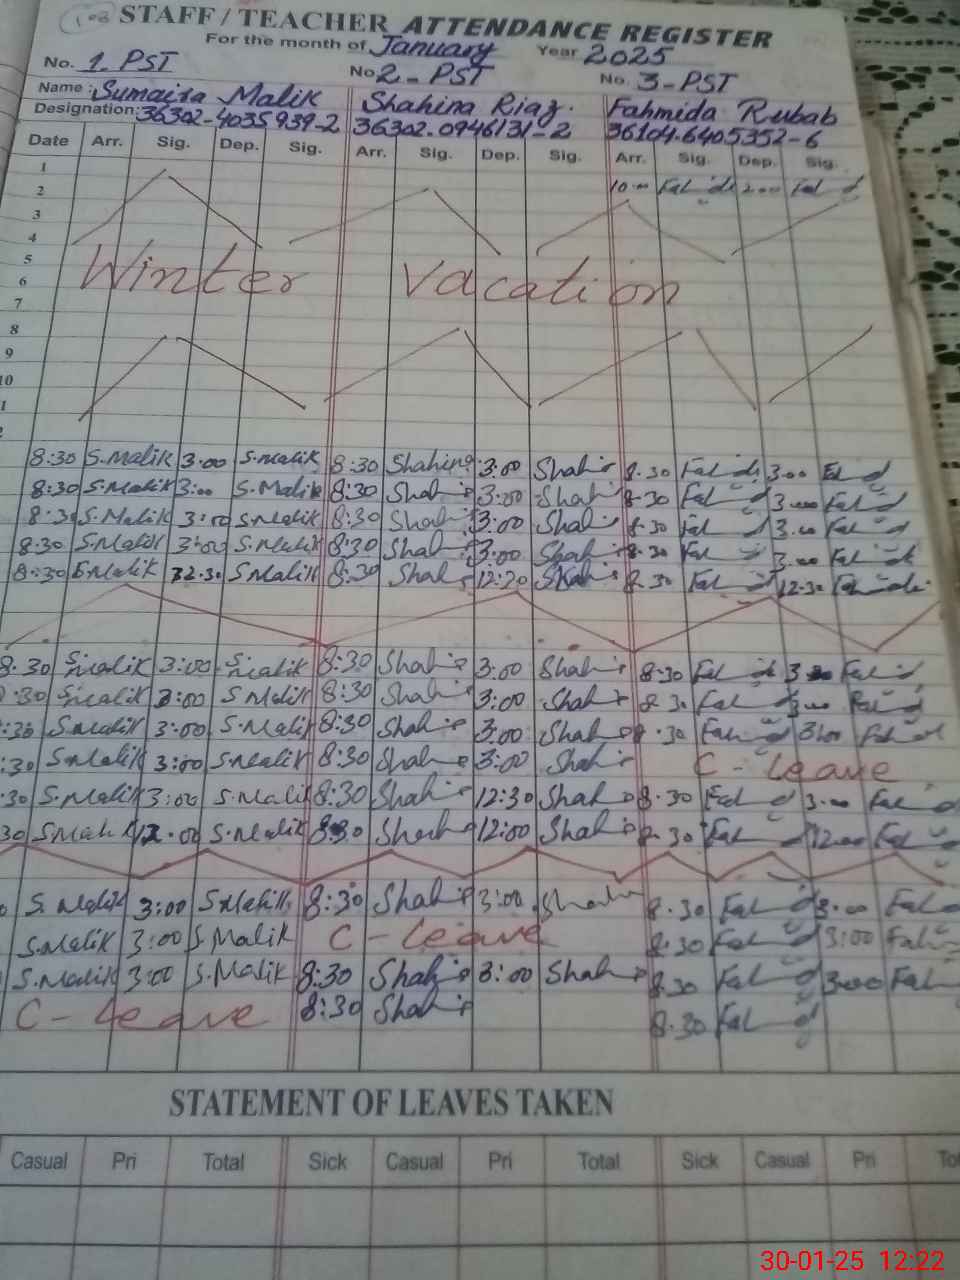 STAFF / TEACHER ATTENDANCE REGISTER
For the month of January Year 2025
No. 1. PST No 2 - PST No. 3 - PST
Name : Sumaira Malik Shahina Riaz. Fahmida Rubab
Designation: 36302-4035939-2 36302.0946131-2 36104.6405352-6
Date Arr. Sig. Dep. Sig. Arr. Sig. Dep. Sig. Arr. Sig. Dep. Sig.
1
2 10.00 2.00
3
4
5
6 Winter Vacation
7
8
9
10
1
2
8:30 S.Malik 3:00 S.Malik 8:30 Shahina 3:00 Shah 8.30 3.00
8:30 S.Malik 3:00 S.Malik 8:30 Shah 3:00 Shah 8.30 3.00
8:30 S.Malik 3:00 S.Malik 8:30 Shah 3:00 Shah 8.30 3.00
8:30 S.Malik 3:00 S.Malik 8:30 Shah 3:00 Shah 8.30 3.00
8:30 S.Malik 12.30 S.Malik 8:30 Shah 12:30 Shah 8.30 12.30
8.30 S.Malik 3:00 S.Malik 8:30 Shah 3:00 Shah 8.30 3.00
:30 S.Malik 3:00 S.Malik 8:30 Shah 3:00 Shah 8.30 3.00
:30 S.Malik 3:00 S.Malik 8:30 Shah 3:00 Shah 8.30 3.00
:30 S.Malik 3:00 S.Malik 8:30 Shah 3:00 Shah C - leave
30 S.Malik 3:00 S.Malik 8:30 Shah 12:30 Shah 8.30 3.00
30 S.Malik 12.00 S.Malik 8:30 Shah 12:00 Shah 8.30 12.00
0 S.Malik 3:00 S.Malik 8:30 Shah 3:00 Shah 8.30 3.00
S.Malik 3:00 S.Malik C - leave 8.30 3:00
S.Malik 3:00 S.Malik 8:30 Shah 3:00 Shah 8.30 3.00
C - leave 8:30 Shah 8.30
STATEMENT OF LEAVES TAKEN
Casual Pri Total Sick Casual Pri Total Sick Casual Pri To
30-01-25 12:22